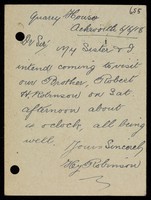 Quarry House
Ackroville 6/5/18
Dr Sir, My Sister & I
intend coming to visit
our Brother, Robert
H. Robinson on Sat
afternoon about
4 o'clock, all being
well,
Yours Sincerely
Robinson